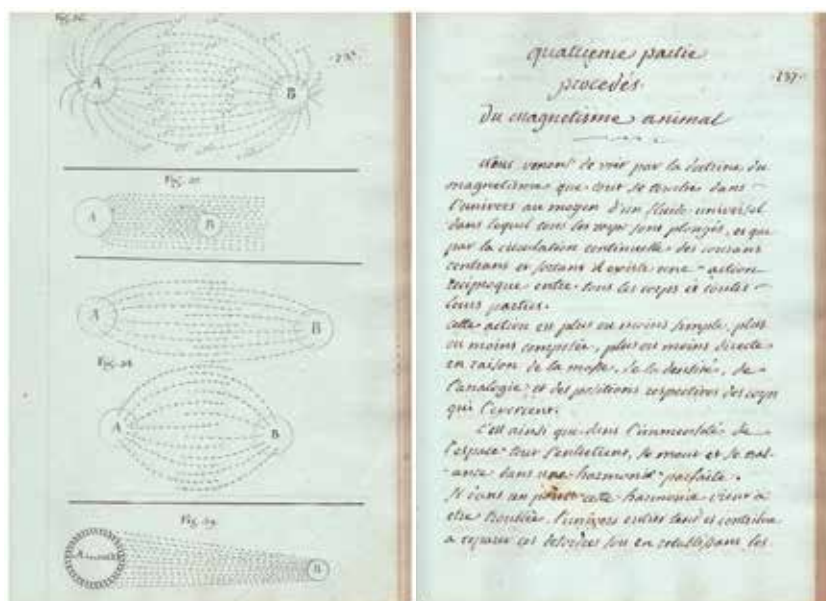 A
B
Fig. 27.
A
B
A
B
Fig. 28
A
B
Fig. 29
A
B
quatrieme partie
procedés
du magnetisme animal
237.
Nous venons de voir par la doctrine du
magnetisme que tout se touche dans
l'univers au moyen d'un fluide universel
dans lequel tous les corps sont plongés, et que
par la circulation continuelle des courans
rentrans et sortans il existe une action
reciproque entre tous les corps et toutes
leurs parties.
cette action est plus ou moins simple, plus
ou moins composée, plus ou moins directe
en raison de la masse, de la densité, de
l'analogie et des positions respectives des corps
qui l'exercent.
C'est ainsi que dans l'immensité de
l'espace tout s'entretient, se meut et se bal-
ance dans une harmonie parfaite.
Si dans un point cette harmonie vient à
etre troublée, l'univers entier tend et contribue
a reparer ces desordres soit en retablissant les